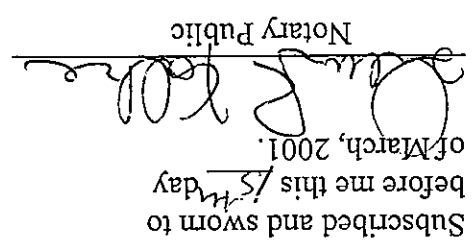 Subscribed and sworn to
before me this 15th day
of March, 2001.
Notary Public